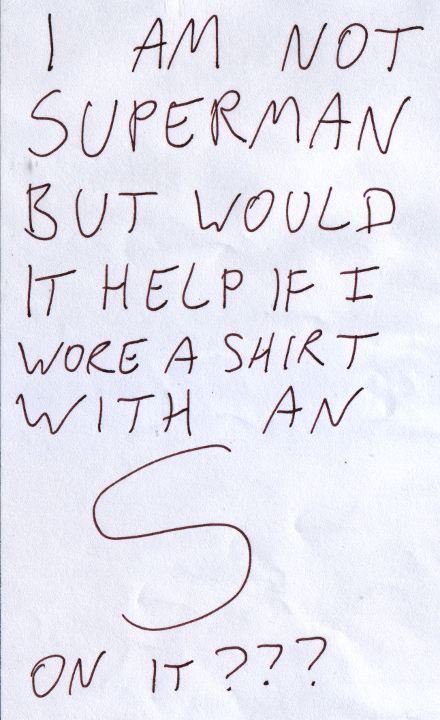 I AM NOT
SUPERMAN
BUT WOULD
IT HELP IF I
WORE A SHIRT
WITH AN
S
ON IT???